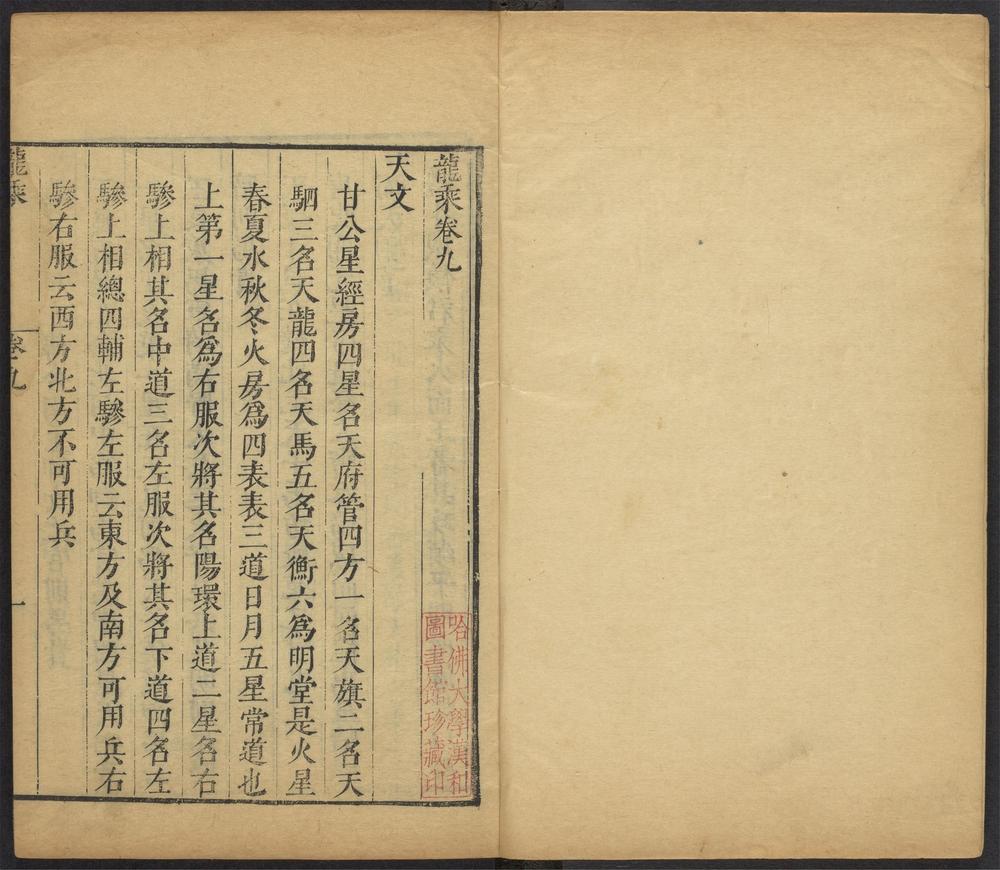 龍乘卷九
天文
甘公星經房四星名天府管四方一名天旗二名天
駟三名天龍四名天馬五名天衡六爲明堂是火星
春夏水秋冬火房爲四表表三道日月五星常道也
上第一星名爲右服次將其名陽環上道二星名右
驂上相其名中道三名左服次將其名下道四名左
驂上相總四輔左驂左服云東方及南方可用兵右
驂右服云西方北方不可用兵
龍乘
卷九
一
哈佛大學漢和
圖書館珍藏印